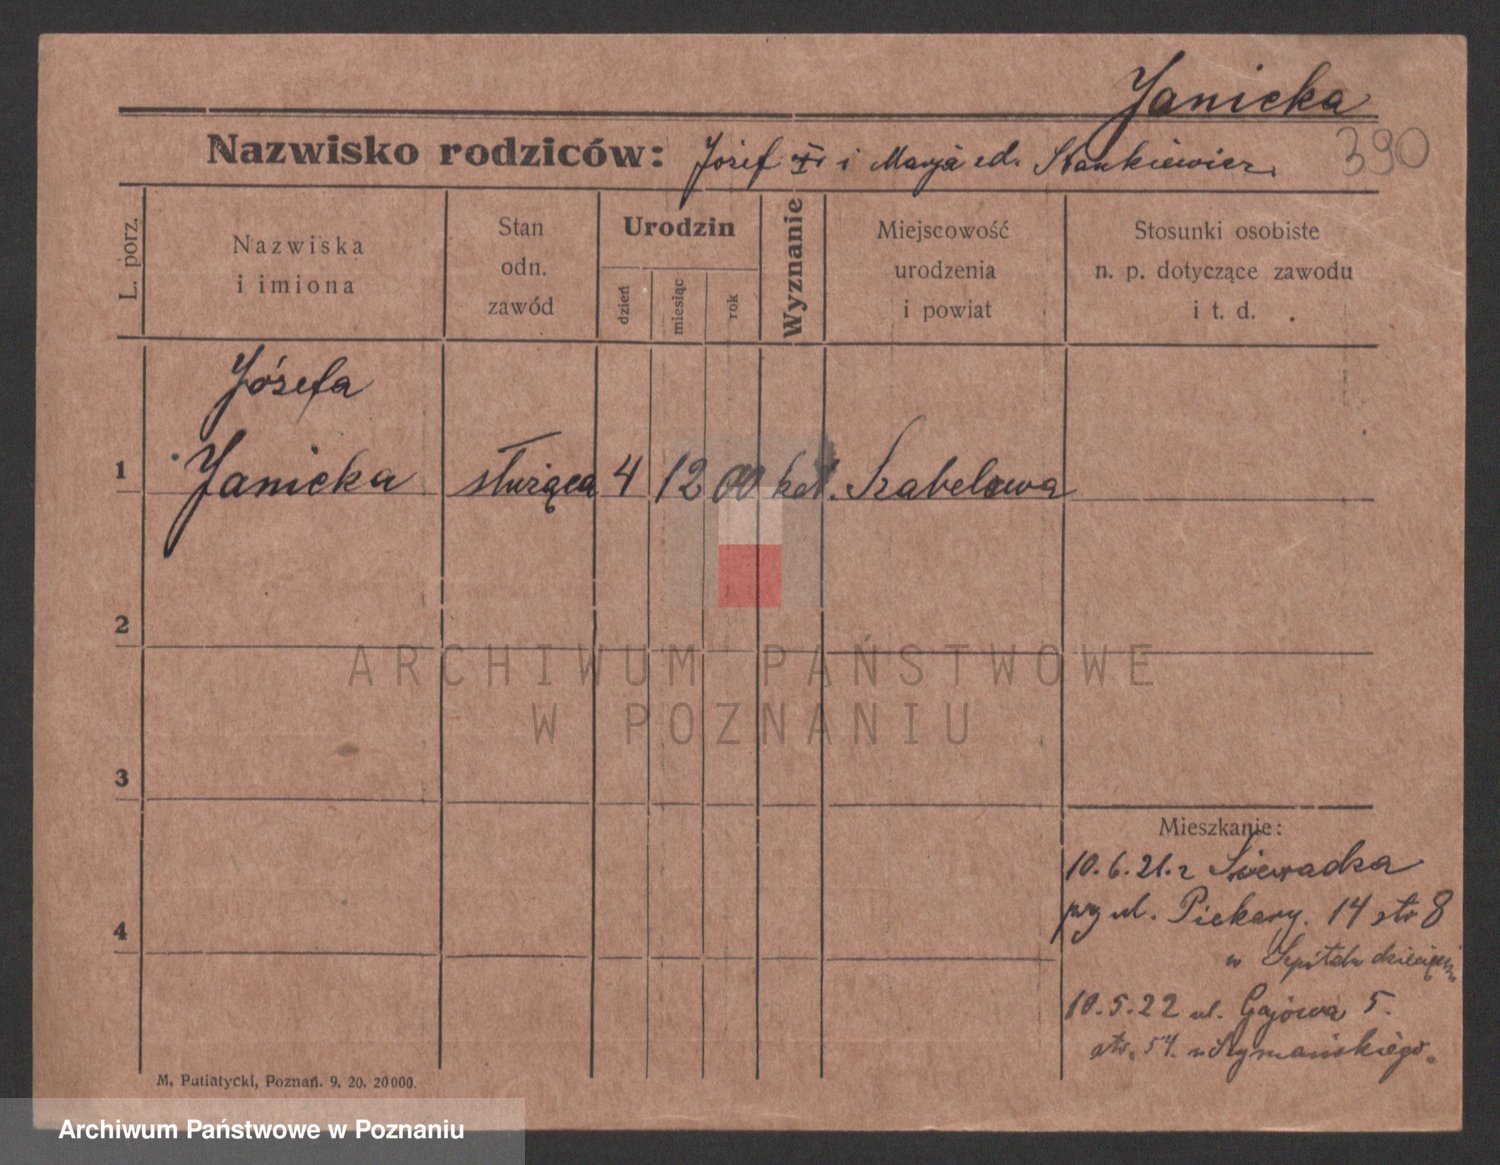 Janicka
390
Nazwisko rodziców: Józef i Marja Stankiewicz
L. porz.
Nazwiska
i imiona
Stan
odn.
zawód
Urodzin
dzień
miesiąc
rok
Wyznanie
Miejscowość
urodzenia
i powiat
Stosunki osobiste
n. p. dotyczące zawodu
i t. d.
Józefa
1 Janicka służąca 4 12 00 kat. Szabelowa
2
ARCHIWUM PAŃSTWOWE
W POZNANIU
3
Mieszkanie:
10.6.21. z
przy ul. Piekary. 14 str 8
4
w Szpitalu
10.5.22 ul. Gajowa 5.
str. 54. u Szymańskiego.
M. Putiatycki, Poznań. 9. 20. 20000.
Archiwum Państwowe w Poznaniu